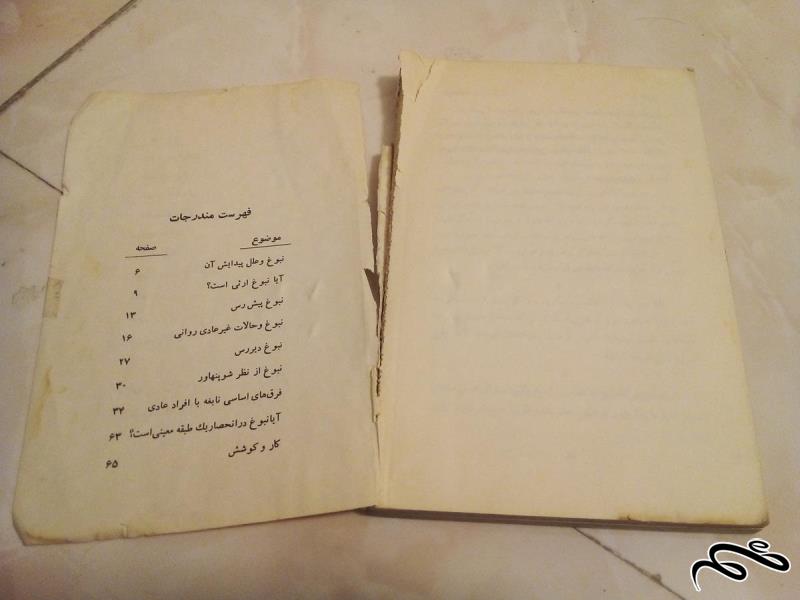 فهرست مندرجات
موضوع صفحه
نبوغ وعلل پیدایش آن ۶
آیا نبوغ ارثی است؟ ۹
نبوغ پیش رس ۱۳
نبوغ وحالات غیرعادی روانی ۱۶
نبوغ دیررس ۲۷
نبوغ از نظر شوپنهاور ۳۰
فرق‌های اساسی نابغه با افراد عادی ۳۲
آیانبوغ درانحصاریك طبقه معینی‌است؟ ۶۳
کار و کوشش ۶۵